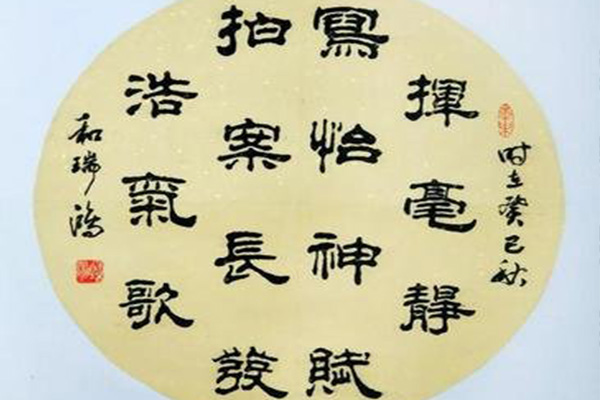 時在癸巳秋
揮毫靜
寫怡神賦
拍案長發
浩氣歌
和瑞鴻